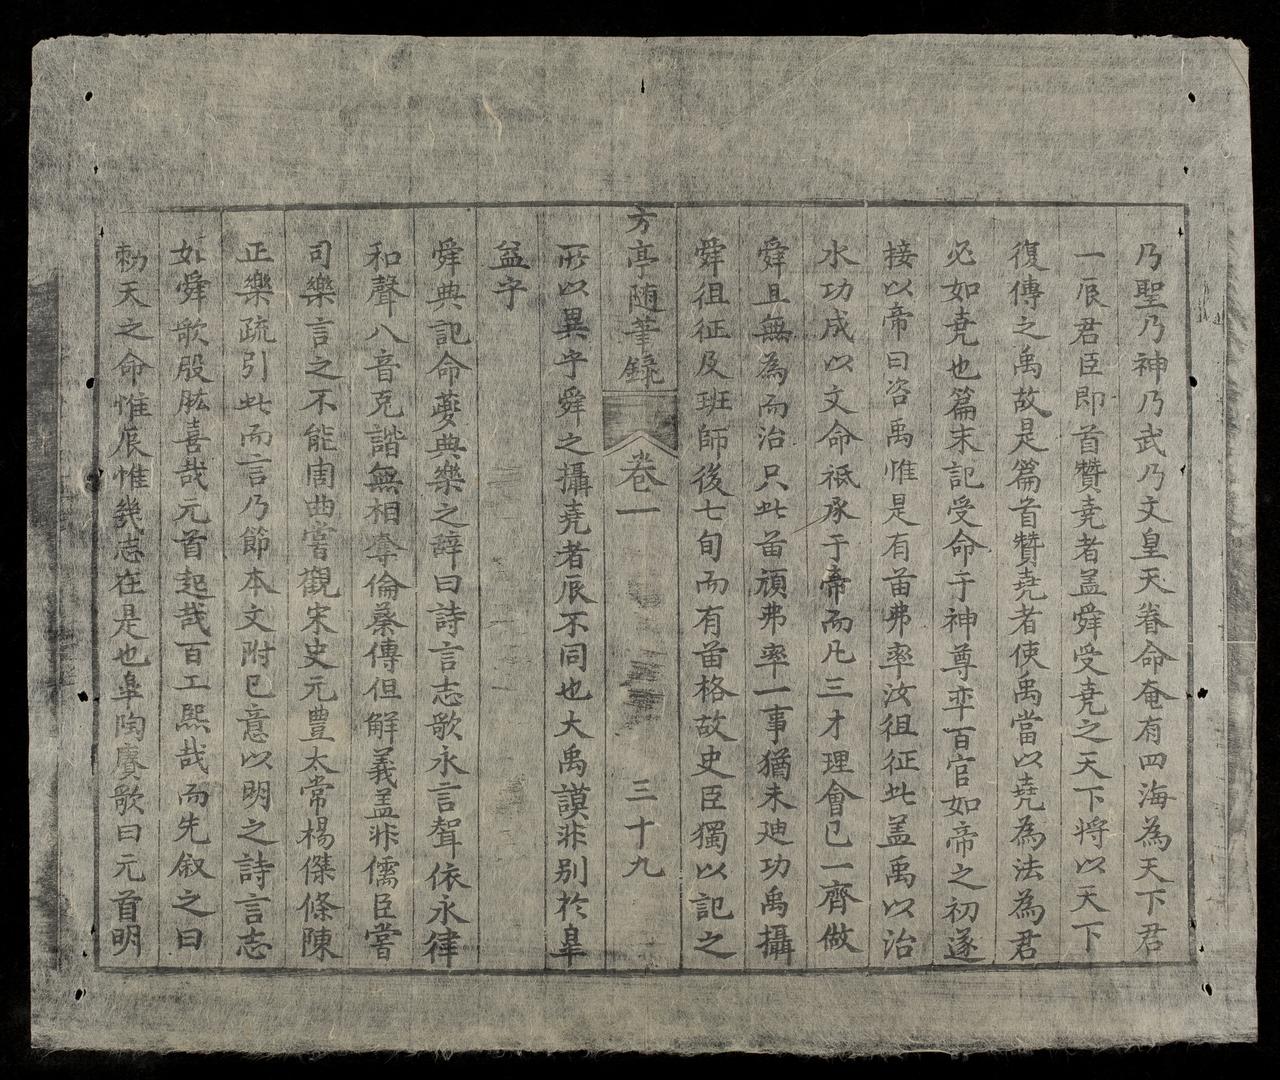 乃聖乃神乃武乃文皇天眷命奄有四海為天下君
一辰君臣即首贊堯者盖舜受堯之天下將以天下
復傳之禹故是篇首贊堯者使禹當以堯為法為君
必如堯也篇末記受命于神尊率百官如帝之初遂
接以帝曰咨禹惟是有苗弗率汝徂征此盖禹以治
水功成以文命祗承于帝而凡三才理會已一齊做
舜且無為而治只此苗頑弗率一事猶未廸功禹攝
舜徂征及班師後七旬而有苗格故史臣獨以記之
方亭随筆錄 卷一 三十九
所以異乎舜之攝堯者辰不同也大禹謨非别於臯
益乎
舜典記命夔典樂之辭曰詩言志歌永言聲依永律
和聲八音克諧無相奪倫蔡傳但解義盖非儒臣嘗
司樂言之不能周曲嘗觀宋史元豊太常楊傑條陳
正樂疏引此而言乃節本文附己意以明之詩言志
如舜歌股肱喜哉元首起哉百工熙哉而先叙之曰
勑天之命惟辰惟幾志在是也臯陶賡歌曰元首明